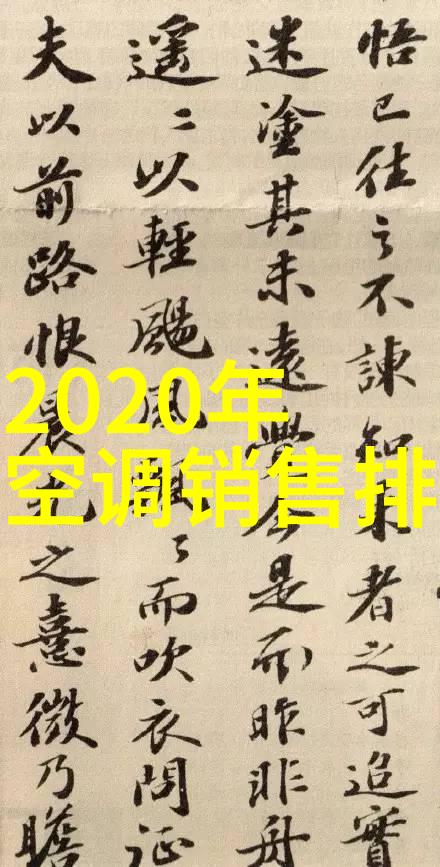 悟已往之不諫知来者之可追實
迷塗其未遠覺今是而昨非舟
遥〻以輕颺風飄〻而吹衣問征
夫以前路恨晨光之熹微乃瞻
2020年
空调销售排